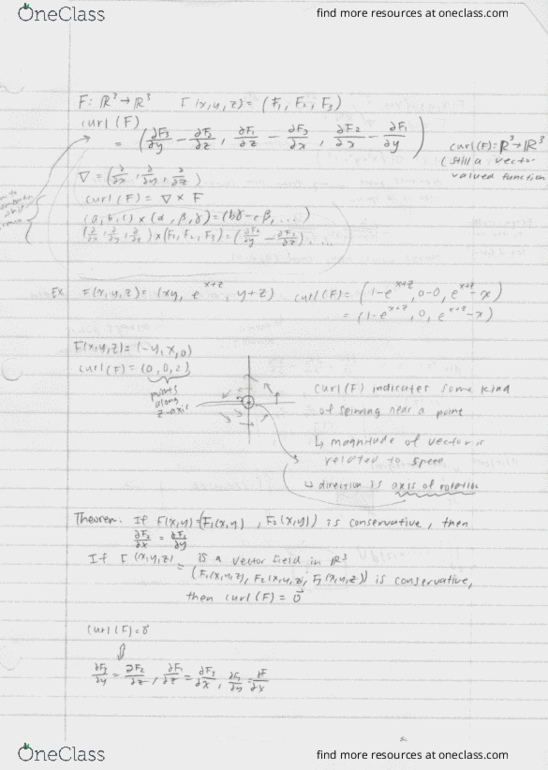 OneClass
find more resources at oneclass.com
F: ℝ³ → ℝ³ F(x,y,z) = (F₁, F₂, F₃)
curl (F)
= (∂F₃/∂y − ∂F₂/∂z, ∂F₁/∂z − ∂F₃/∂x, ∂F₂/∂x − ∂F₁/∂y)
curl(F): ℝ³→ℝ³
(still a vector
valued function
∇ = (∂/∂x, ∂/∂y, ∂/∂z)
curl (F) = ∇ × F
(a, b, c) × (α, β, γ) = (bγ − cβ, ...)
(∂/∂x, ∂/∂y, ∂/∂z) × (F₁, F₂, F₃) = (∂F₃/∂y − ∂F₂/∂z), ...
Ex. F(x,y,z) = (xy, e^(x+z), y+z) curl(F) = (1−e^(x+z), 0−0, e^(x+z)−x)
= (1−e^(x+z), 0, e^(x+z)−x)
F(x,y,z) = (−y, x, 0)
curl (F) = (0, 0, 2)
points
along
z-axis
curl (F) indicates some kind
of spinning near a point
↳ magnitude of vector is
related to speed
↳ direction is axis of rotation
Theorem. If F(x,y) = (F₁(x,y), F₂(x,y)) is conservative, then
∂F₂/∂x = ∂F₁/∂y
If F(x,y,z) = is a vector field in ℝ³
(F₁(x,y,z), F₂(x,y,z), F₃(x,y,z)) is conservative,
then curl (F) = 0⃗
curl (F) = 0⃗
⇓
∂F₃/∂y = ∂F₂/∂z, ∂F₁/∂z = ∂F₃/∂x,
OneClass
find more resources at oneclass.com